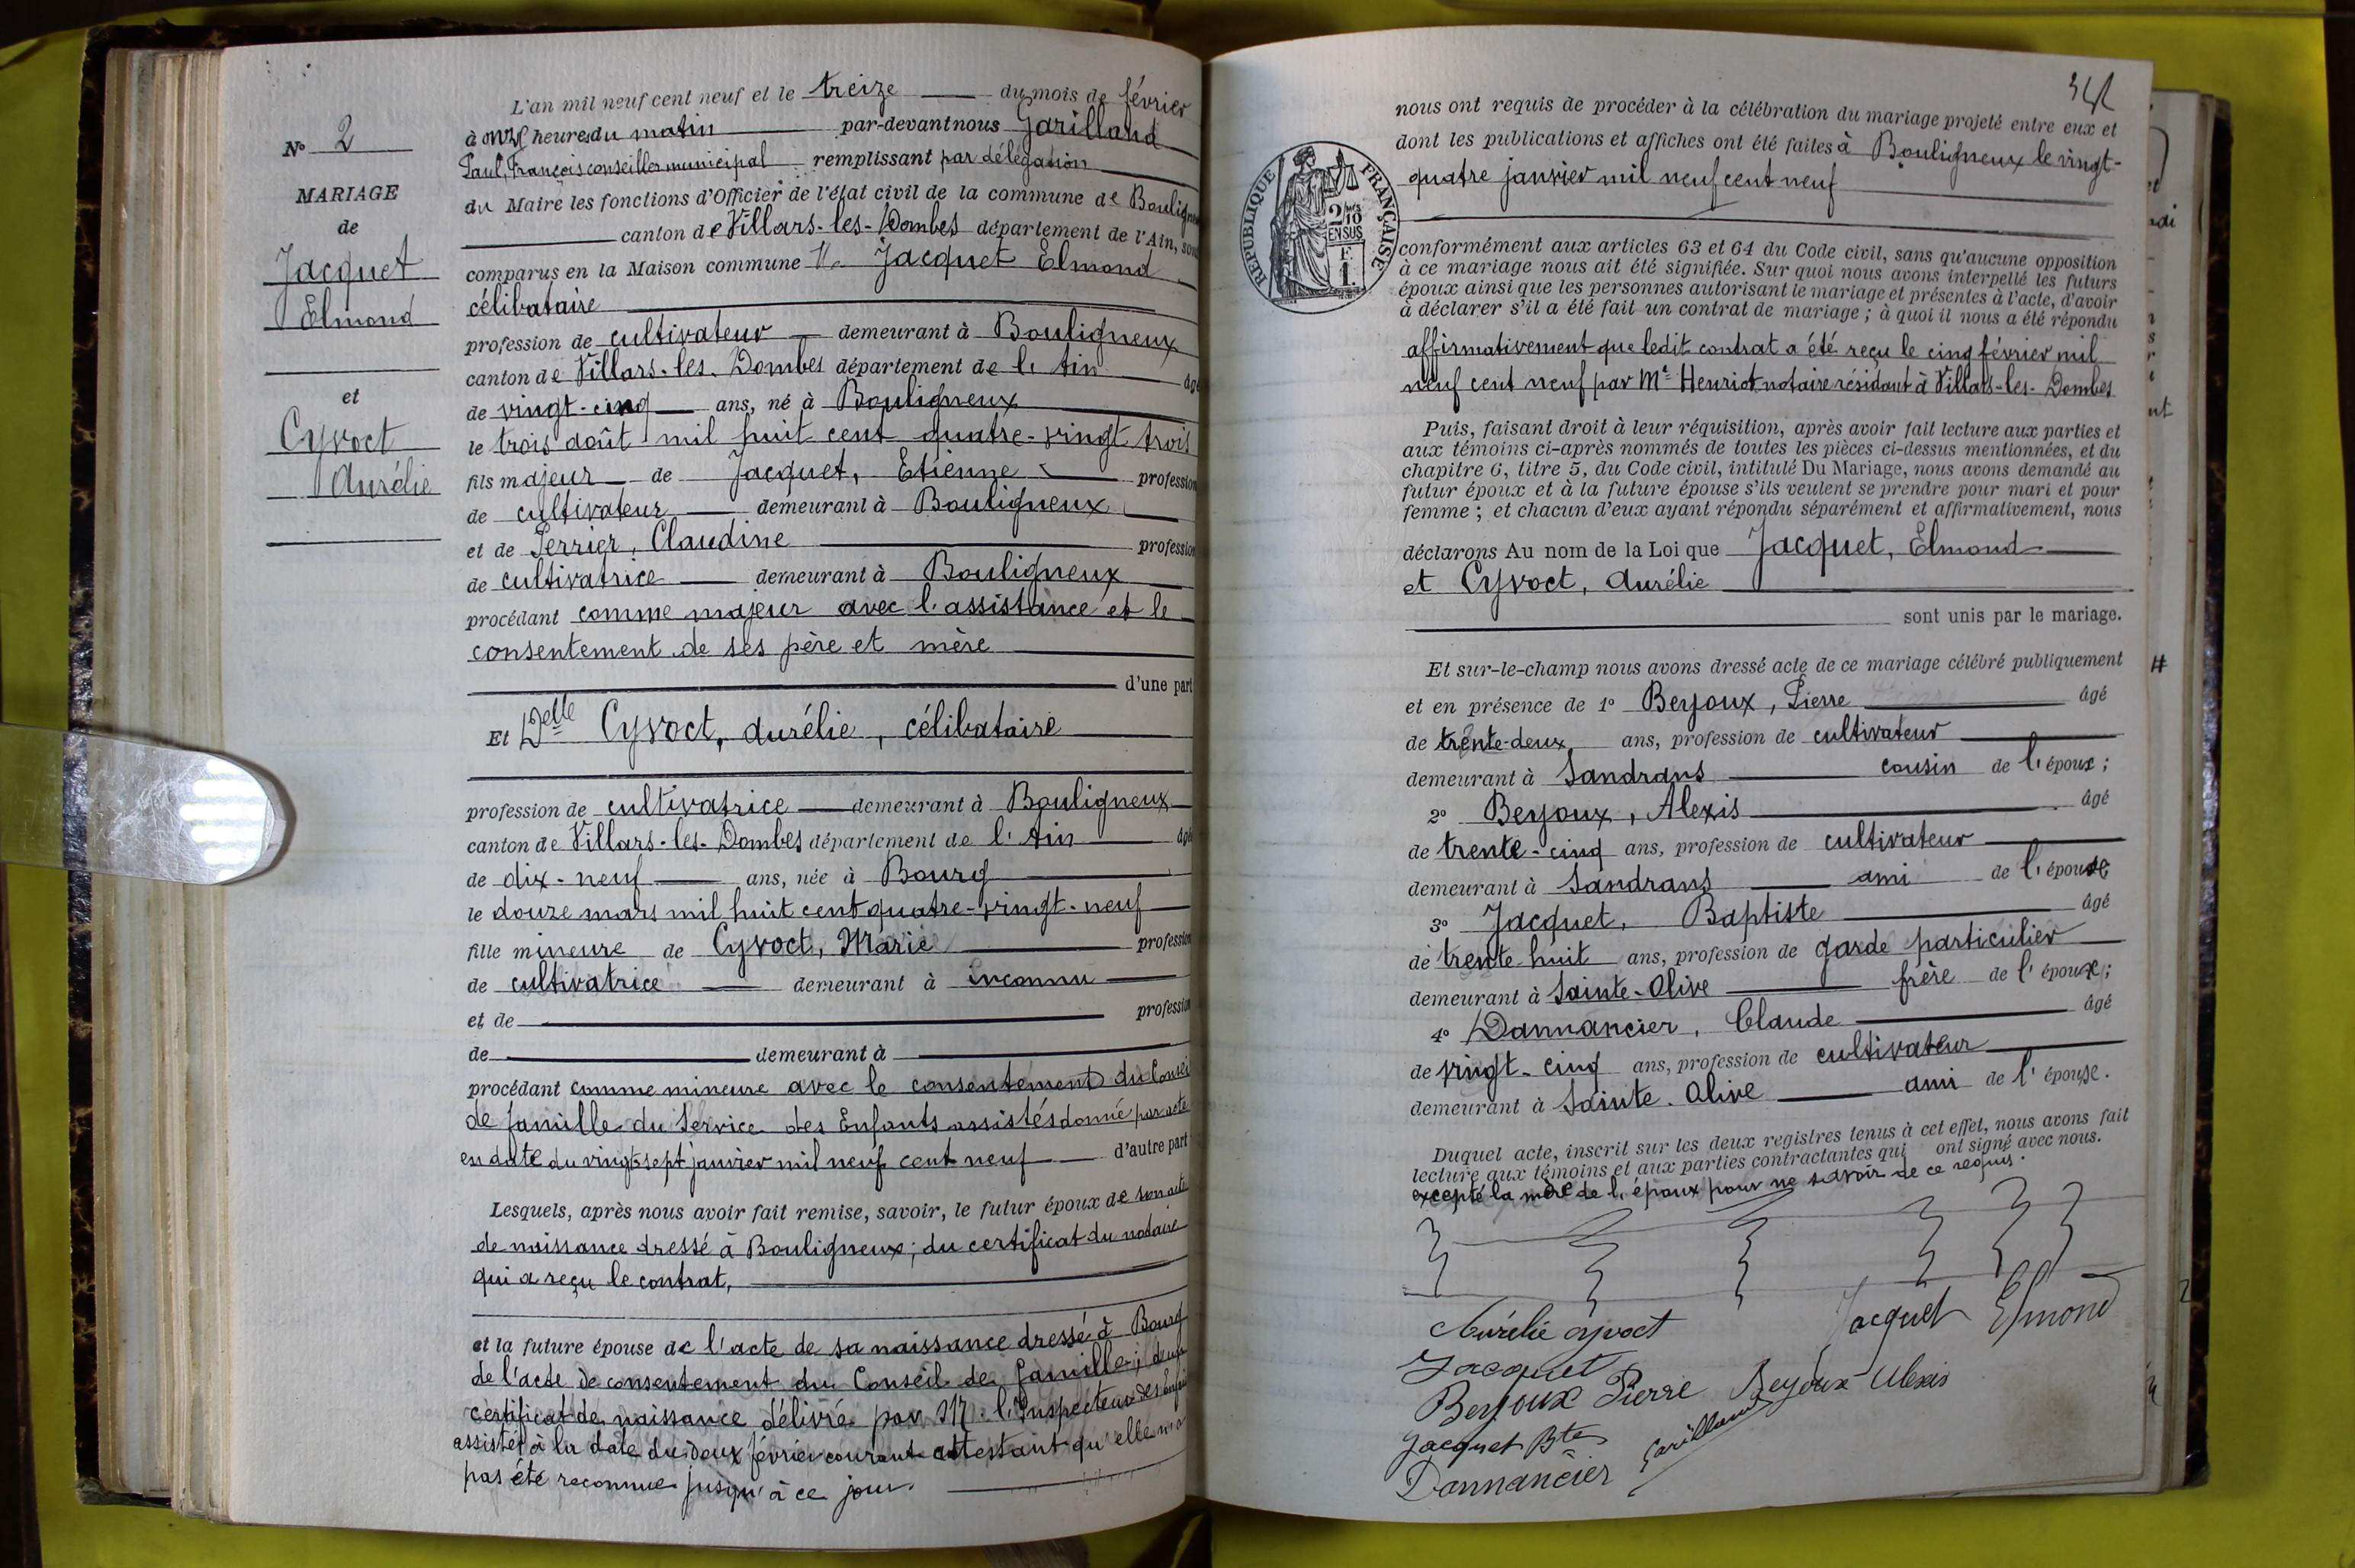 N° 2
MARIAGE
de
Jacquet
Elmond
et
Cyvoct
Aurélie
L'an mil neuf cent neuf et le treize du mois de février
à onze heures du matin par-devant nous Garilland
Paul, François conseiller municipal remplissant par délégation
du Maire les fonctions d'Officier de l'état civil de la commune de
canton de Villars-les-Dombes département de l'Ain,
comparus en la Maison commune Mr Jacquet Elmond
célibataire
profession de cultivateur demeurant à Bouligneux
canton de Villars-les-Dombes département de l'Ain âgé
de vingt-cinq ans, né à Bouligneux
le trois août mil huit cent quatre-vingt trois
fils majeur de Jacquet, Etienne profession
de cultivateur demeurant à Bouligneux
et de Perrier, Claudine profession
de cultivatrice demeurant à Bouligneux
procédant comme majeur avec l'assistance et le
consentement de ses père et mère
d'une part
Et Delle Cyvoct, Aurélie, célibataire
profession de cultivatrice demeurant à Bouligneux
canton de Villars-les-Dombes département de l'Ain âgé
de dix-neuf ans, née à Bourg
le douze mars mil huit cent quatre-vingt-neuf
fille mineure de Cyvoct, Marie profession
de cultivatrice demeurant à inconnu
et de profession
de demeurant à
procédant comme mineure avec le consentement du
de famille du Service des Enfants assistés donné par acte
en date du vingt-sept janvier mil neuf cent neuf d'autre part
Lesquels, après nous avoir fait remise, savoir, le futur époux de son acte
de naissance dressé à Bouligneux; du certificat du notaire
qui a reçu le contrat,
et la future épouse de l'acte de sa naissance dressé à Bourg
de l'acte de consentement du Conseil de famille;
certificat de naissance délivré par M. l'Inspecteur des
assistés à la date du deux février courant attestant qu'elle n'a
pas été reconnue jusqu'à ce jour.
nous ont requis de procéder à la célébration du mariage projeté entre eux et
dont les publications et affiches ont été faites à Bouligneux le vingt-
quatre janvier mil neuf cent neuf
RÉPUBLIQUE FRANÇAISE
2/10
EN SUS
F.
1.
conformément aux articles 63 et 64 du Code civil, sans qu'aucune opposition
à ce mariage nous ait été signifiée. Sur quoi nous avons interpellé les futurs
époux ainsi que les personnes autorisant le mariage et présentes à l'acte, d'avoir
à déclarer s'il a été fait un contrat de mariage; à quoi il nous a été répondu
affirmativement que ledit contrat a été reçu le cinq février mil
neuf cent neuf par Me Henriot notaire résidant à Villars-les-Dombes
Puis, faisant droit à leur réquisition, après avoir fait lecture aux parties et
aux témoins ci-après nommés de toutes les pièces ci-dessus mentionnées, et du
chapitre 6, titre 5, du Code civil, intitulé Du Mariage, nous avons demandé au
futur époux et à la future épouse s'ils veulent se prendre pour mari et pour
femme; et chacun d'eux ayant répondu séparément et affirmativement, nous
déclarons Au nom de la Loi que Jacquet, Elmond
et Cyvoct, Aurélie
sont unis par le mariage.
Et sur-le-champ nous avons dressé acte de ce mariage célébré publiquement
et en présence de 1° Beyoux, Pierre âgé
de trente-deux ans, profession de cultivateur
demeurant à Sandrans cousin de l'époux;
2° Beyoux, Alexis âgé
de trente-cinq ans, profession de cultivateur
demeurant à Sandrans ami de l'épouse
3° Jacquet, Baptiste âgé
de trente-huit ans, profession de garde particulier
demeurant à Sainte-Olive frère de l'époux;
4° Dannancier, Claude âgé
de vingt-cinq ans, profession de cultivateur
demeurant à Sainte-Olive ami de l'épouse.
Duquel acte, inscrit sur les deux registres tenus à cet effet, nous avons fait
lecture aux témoins et aux parties contractantes qui ont signé avec nous.
excepté la mère de l'époux pour ne savoir de ce requis.
Aurélie Cyvoct Jacquet Elmond
Jacquet
Beyoux Pierre Beyoux Alexis
Jacquet Bte Garilland
Dannancier